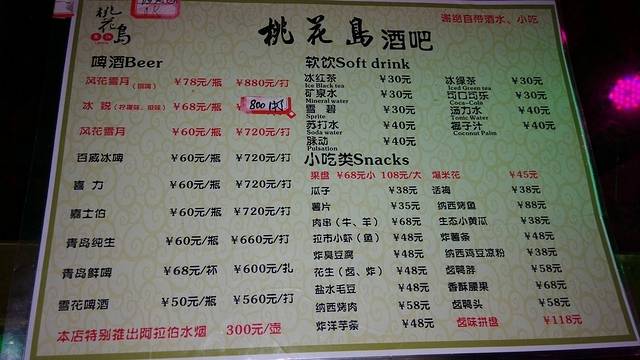 桃花島
桃花島酒吧
谢绝自带酒水、小吃
啤酒Beer
风花雪月 ¥78元/瓶 ¥880元/打
¥68元/瓶 800/打
风花雪月 ¥60元/瓶 ¥720元/打
百威冰啤 ¥60元/瓶 ¥720元/打
喜力 ¥60元/瓶 ¥720元/打
嘉士伯 ¥60元/瓶 ¥720元/打
青岛纯生 ¥60元/瓶 ¥660元/打
青岛鲜啤 ¥68元/杯 ¥600元/扎
雪花啤酒 ¥50元/瓶 ¥560元/打
本店特别推出阿拉伯水烟 300元/壶
软饮Soft drink
冰红茶 ¥30元 冰绿茶 ¥30元
Ice Black tea Iced Green tea
矿泉水 ¥30元 可口可乐 ¥30元
Mineral water Coca-Cola
雪碧 ¥30元 汤力水 ¥40元
Sprite Tonic Water
苏打水 ¥40元 椰子汁 ¥40元
Soda water Coconut Palm
脉动 ¥40元
Pulsation
小吃类Snacks
果盘 ¥68元小 108元/大 爆米花 ¥45元
瓜子 ¥38元 话梅 ¥38元
薯片 ¥35元 纳西烤鱼 ¥88元
肉串（牛、羊） ¥68元 生态小黄瓜 ¥38元
拉市小虾（鱼） ¥48元 炸薯条 ¥48元
炸臭豆腐 ¥48元 纳西鸡豆凉粉 ¥38元
花生（卤、炸） ¥48元 卤鸭脖 ¥58元
盐水毛豆 ¥48元 香酥腰果 ¥68元
纳西烤肉 ¥58元 卤鸭头 ¥58元
炸洋芋条 ¥48元 卤味拼盘 ¥118元